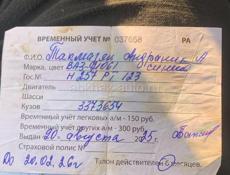 ВРЕМЕННЫЙ УЧЕТ № 037658 РА
Ф.И.О. Такмазян Андраник А
Марка, цвет ВАЗ 21061 синий
Гос.№ Н 257 РТ 123
Двигатель
Шасси
Кузов 3373654
Временный учёт легковых а/м - 150 руб.
Временный учет других а/м - 300 руб.
Выдан 20 августа 2025г.
Страховой полис №
До 20.02.26г Талон действителен 6 месяцев.